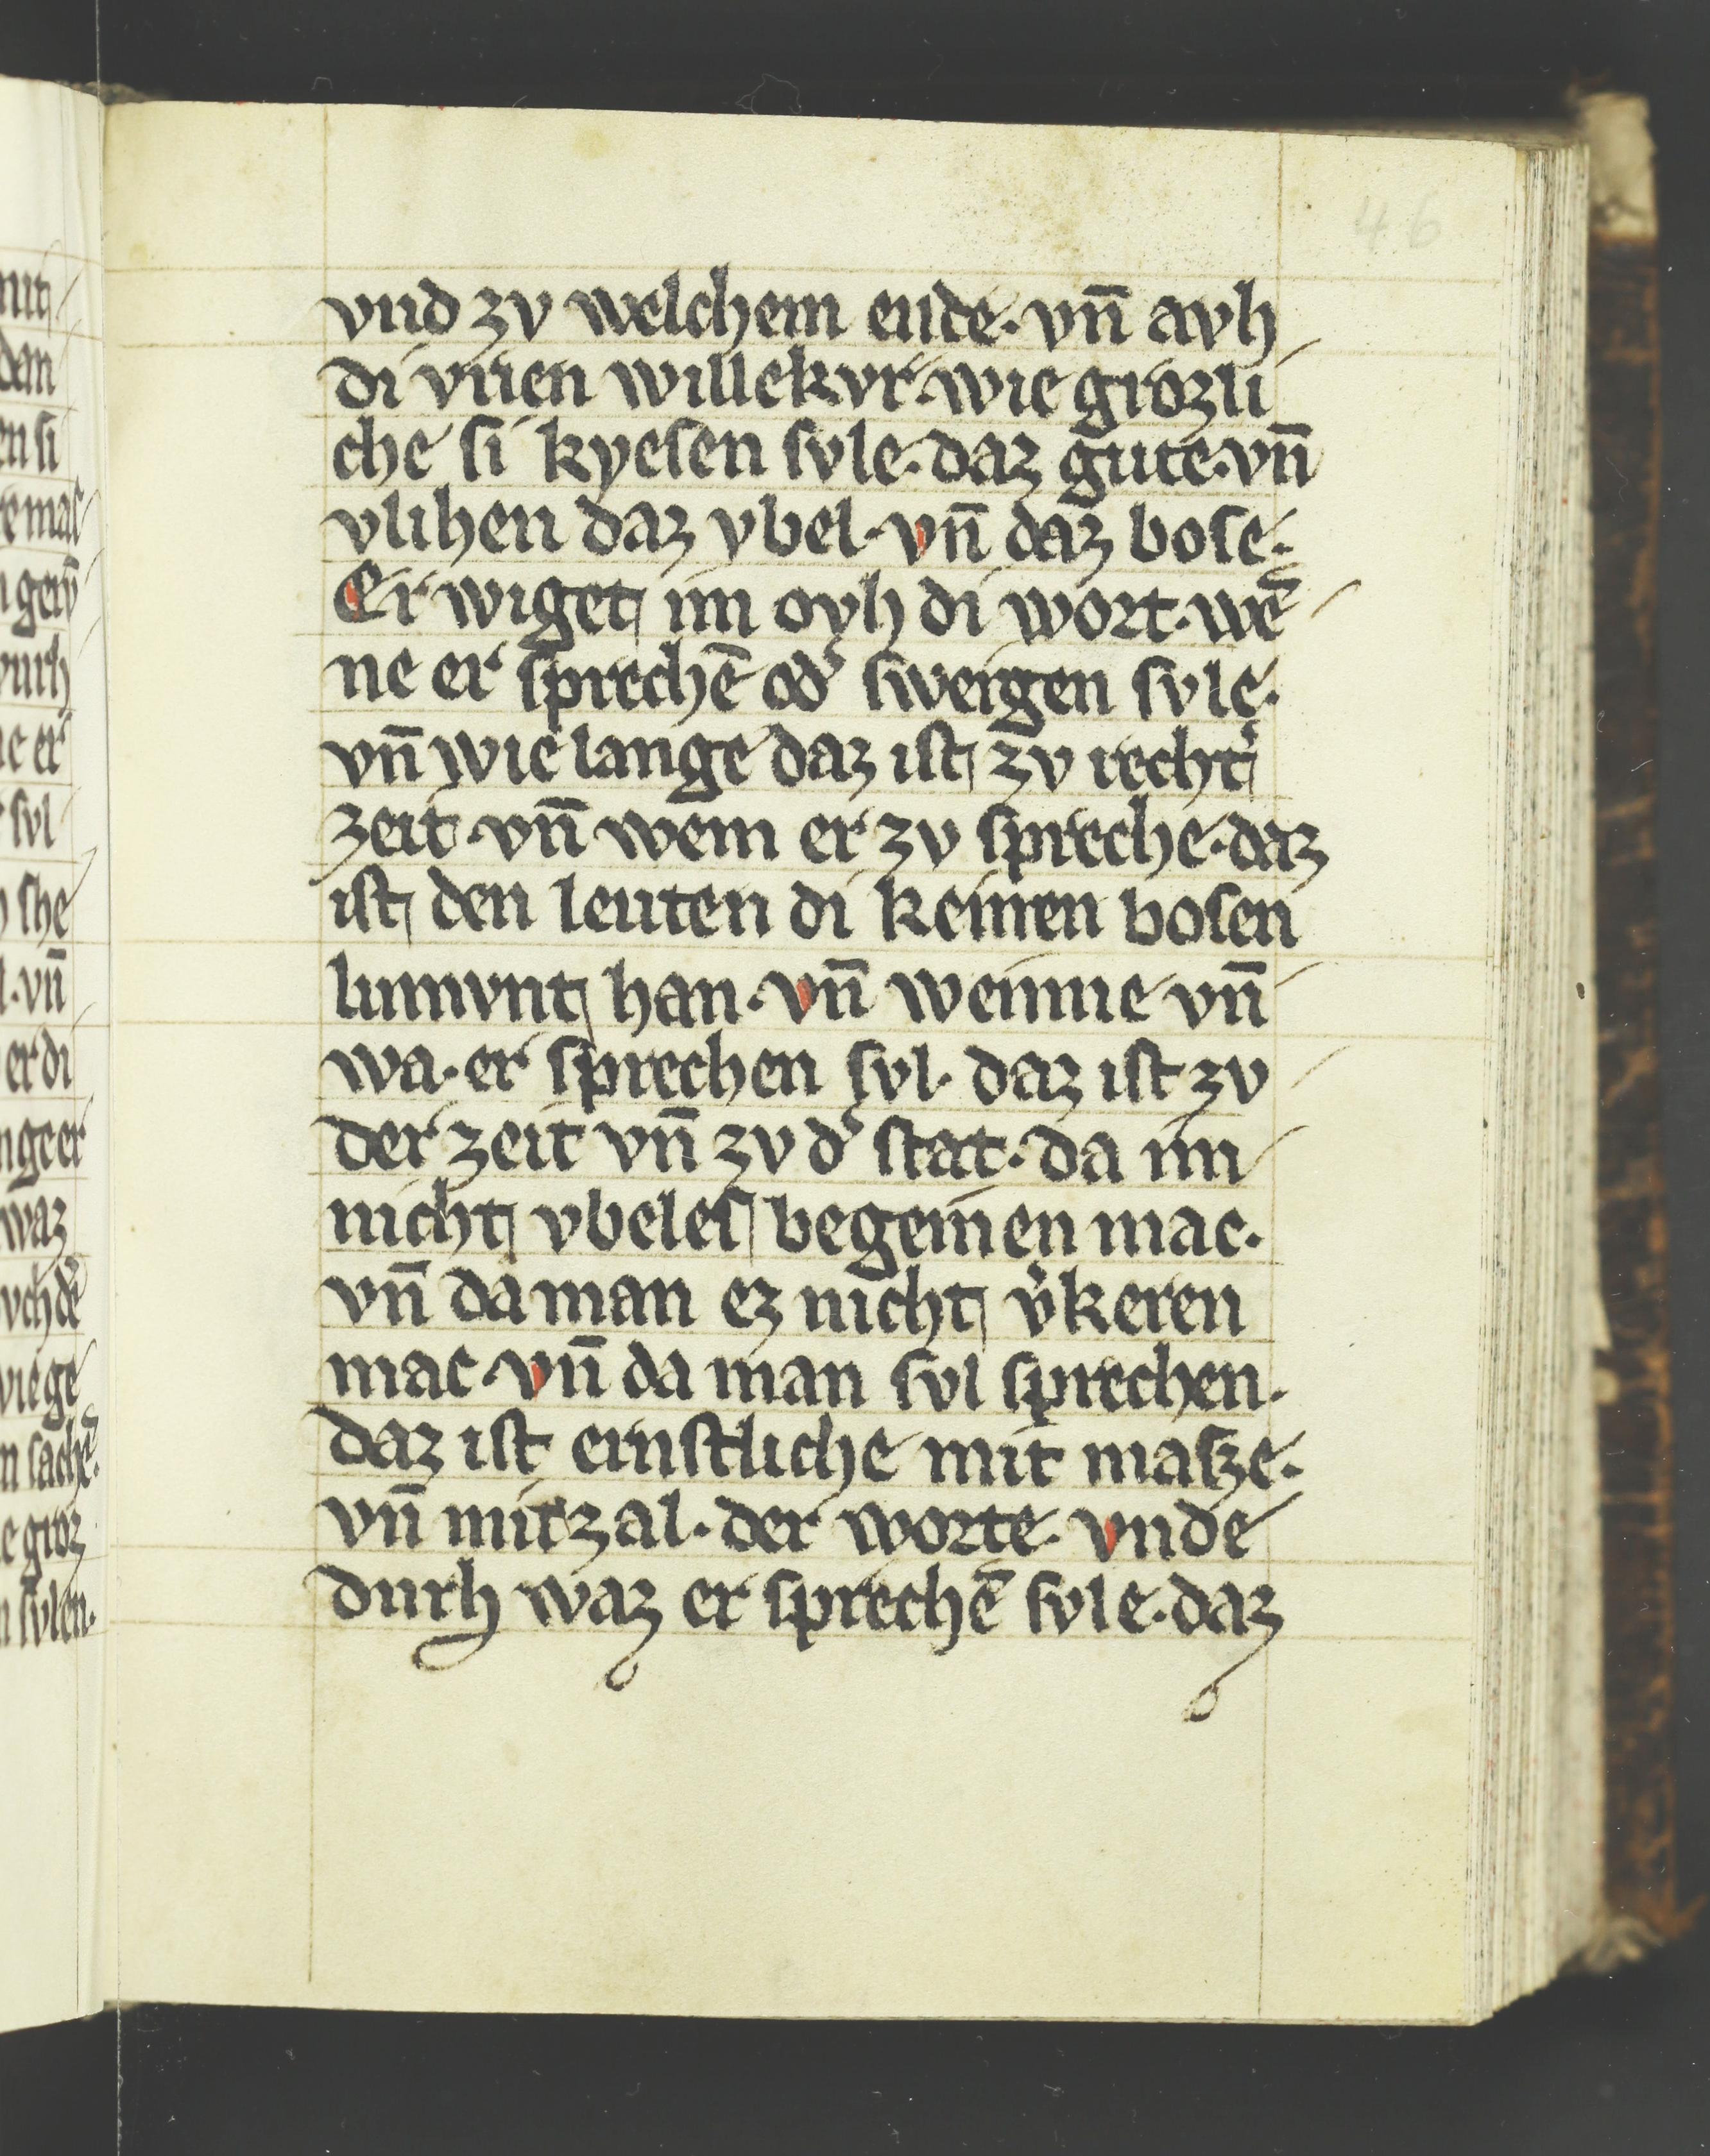 46
vnd zv welchem ende· vn̄ avh
di vrien willekvr· wie grozli
che si kyesen svle· daz gute· vn̄
vlihen daz vbel· vn̄ daz bose·
Er wiget im ovh di wort· wē
ne er sprechē od᷎ sweigen svle·
vn̄ wie lange daz ist zv recht᷎
zeit· vn̄ wem er zv spreche· daz
ist den leuten di keinen bosen
limvnt han· vn̄ wenne vn̄
wa· er sprechen svl· daz ist zv
der zeit vn̄ zv d᷎ stat· da im
nicht vbeles begeinen mac·
vn̄ da man ez nicht v᷎keren
mac· vn̄ da man svl sprechen·
daz ist ernstliche mit masze·
vn̄ mit zal· der worte· vnde
durh waz er sprechē svle· daz